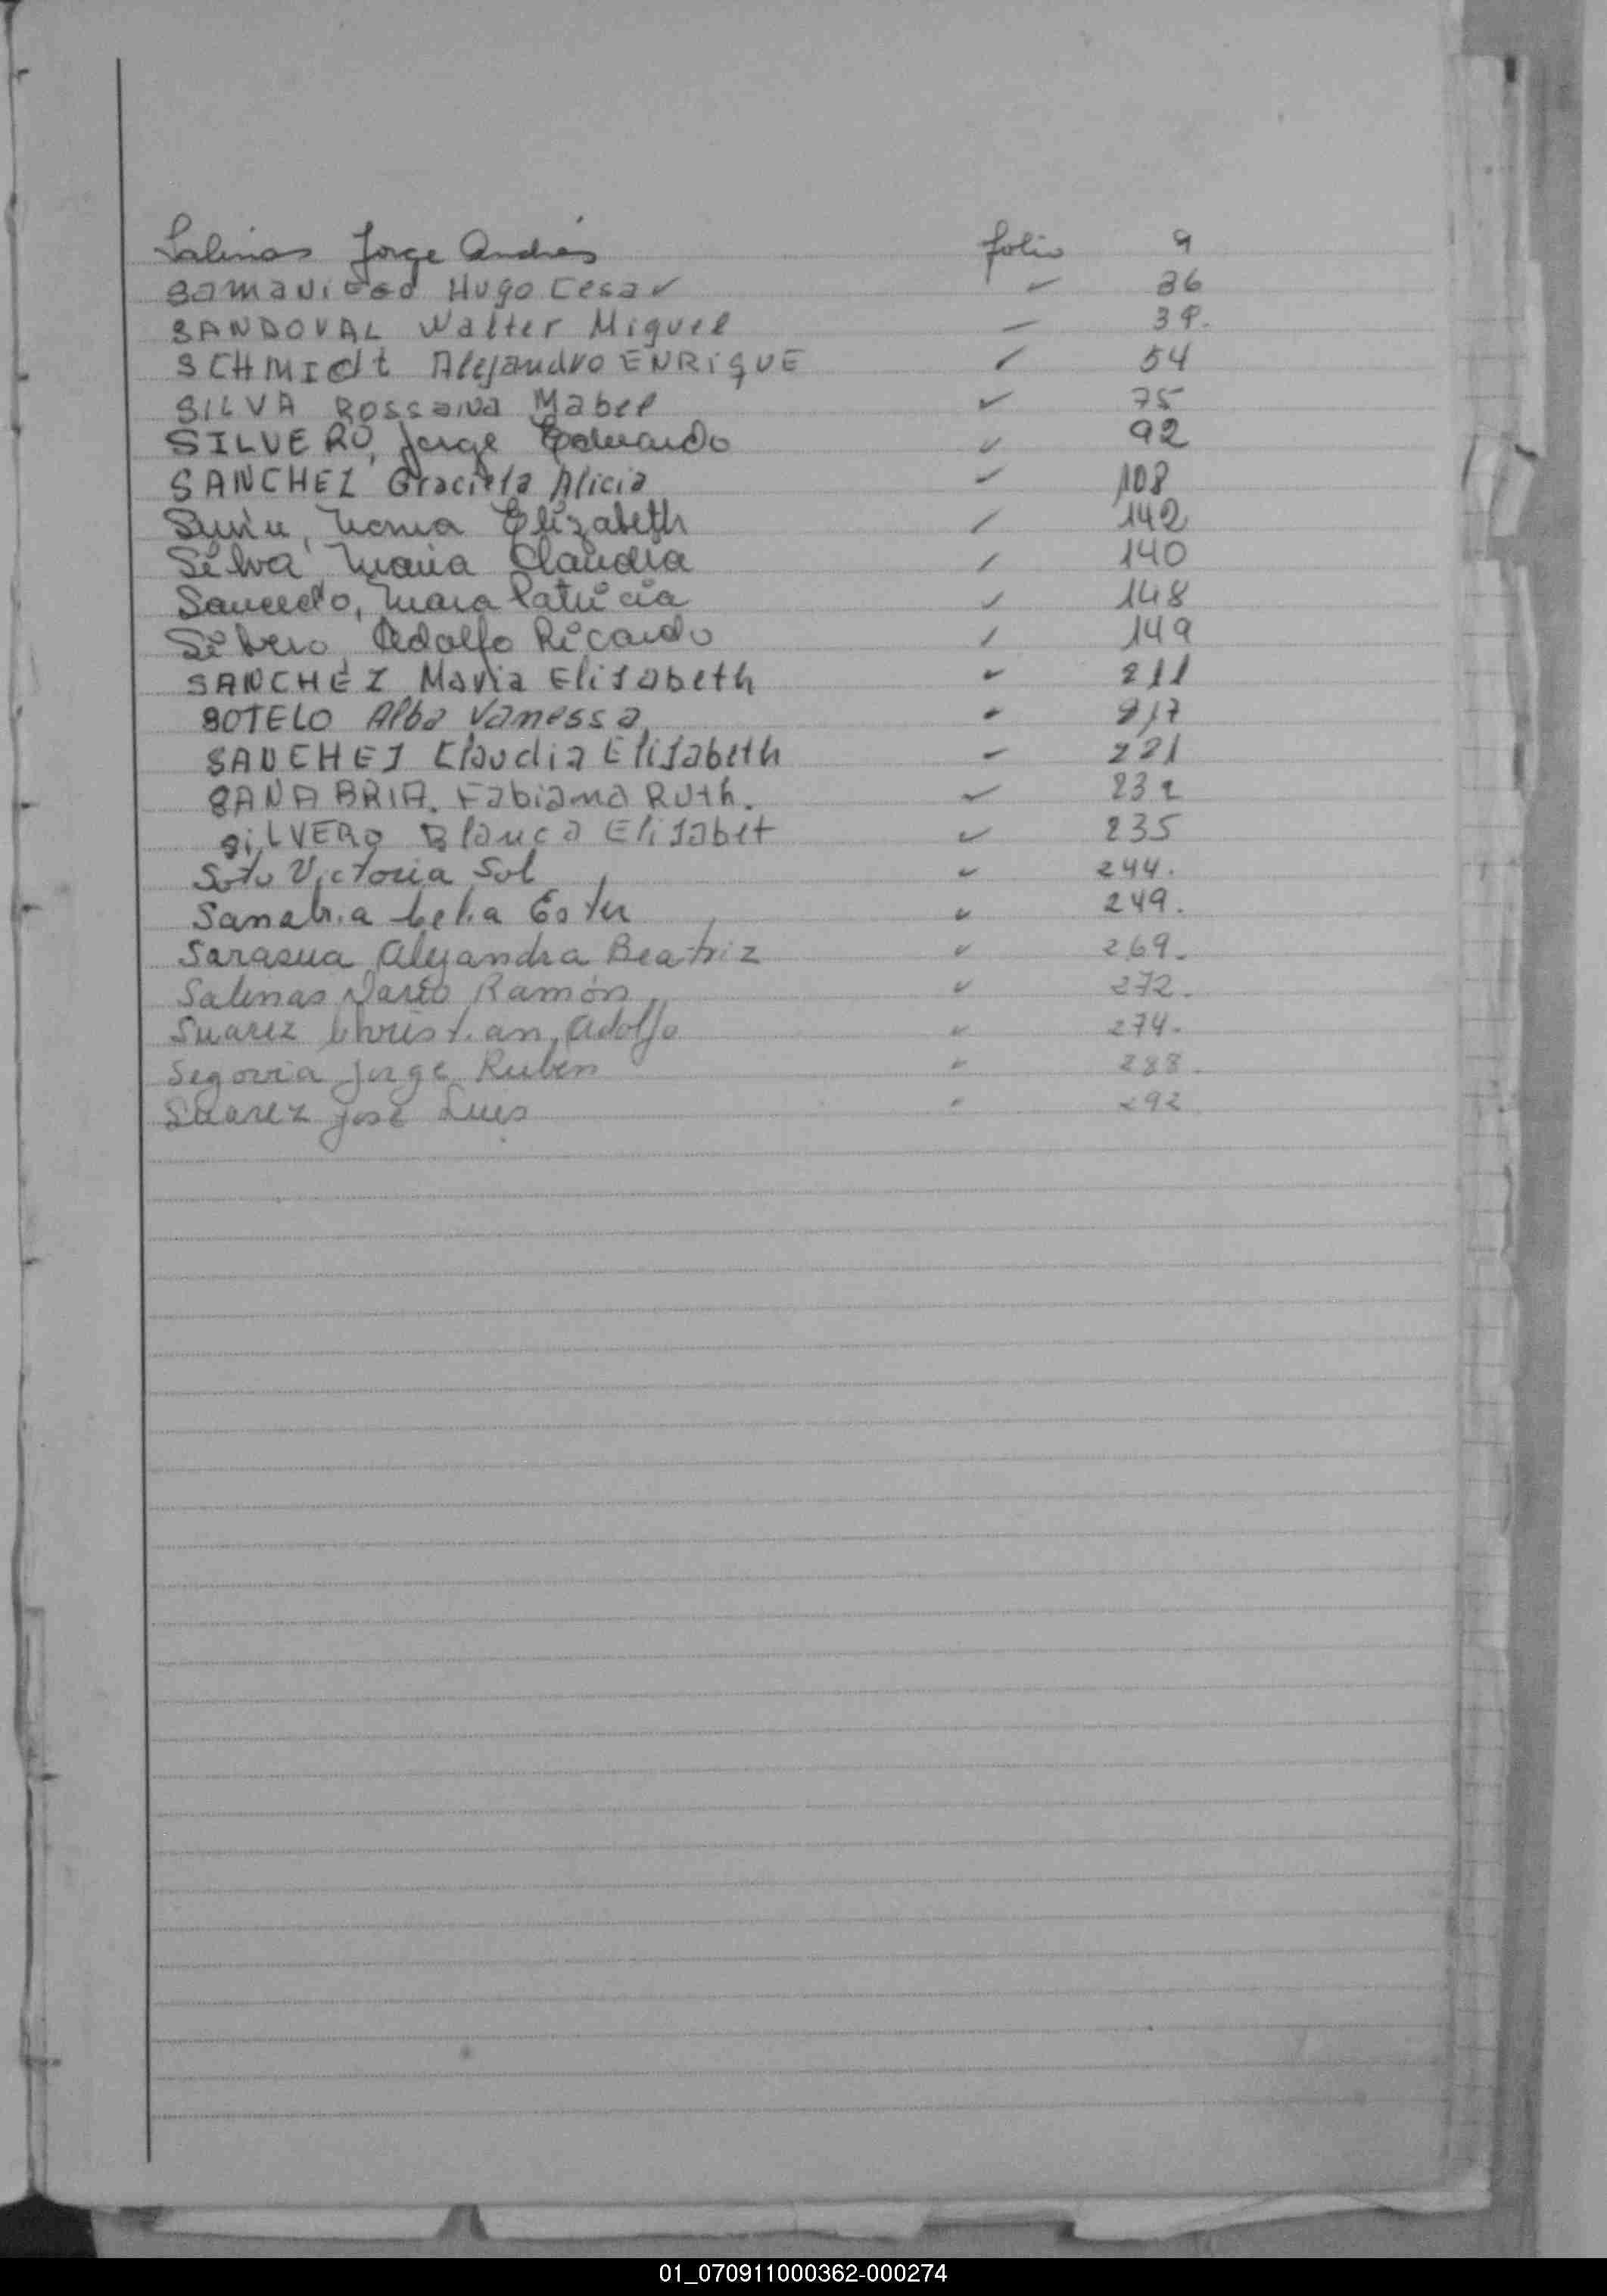 Salinas Jorge Andrés folio 9
Samaniego Hugo Cesar ✓ 36
SANDOVAL Walter Miguel — 39.
SCHMIdt Alejandro ENRiQUE ✓ 54
SILVA Rossana Mabel ✓ 75
SILVERO, Jorge Eduardo ✓ 92
SANCHEZ Graciela Alicia ✓ 108
Elizabeth ✓ 142
Silva, Maria Claudia ✓ 140
Saucedo, Maria Patricia ✓ 148
Silvero, Adolfo Ricardo ✓ 149
SANCHEZ Maria Elizabeth ✓ 211
SOTELO Alba Vanessa 217
SANCHEZ Claudia Elizabeth ✓ 221
SANABRIA. Fabiana Ruth. ✓ 232
SiLVERO Blanca Elizabet ✓ 235
Soto Victoria Sol ✓ 244.
Sanabria Celia Ester ✓ 249.
Sarasua Alejandra Beatriz ✓ 269.
Salinas Dario Ramón ✓ 272.
Suarez Christian Adolfo ✓ 274.
Segovia Jorge Rubén ✓ 288.
Suarez José Luis 292
01_070911000362-000274